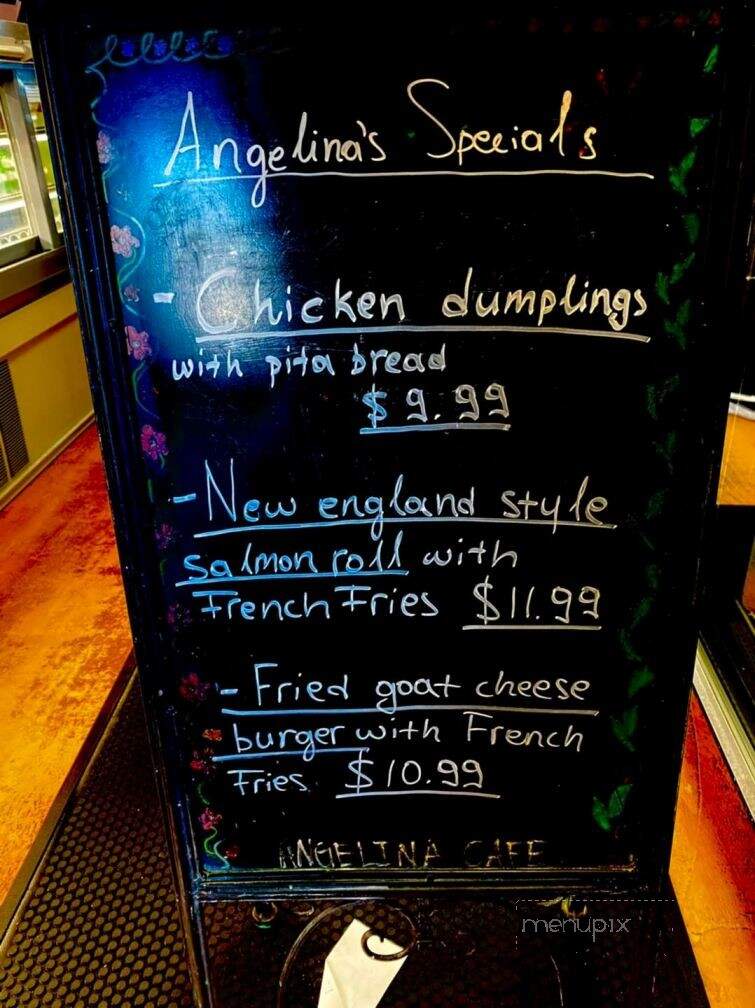 Angelina's Specials
- Chicken dumplings
with pita bread
$9.99
- New england style
salmon roll with
French Fries $11.99
- Fried goat cheese
burger with French
Fries $10.99
ANGELINA CAFE
menupix